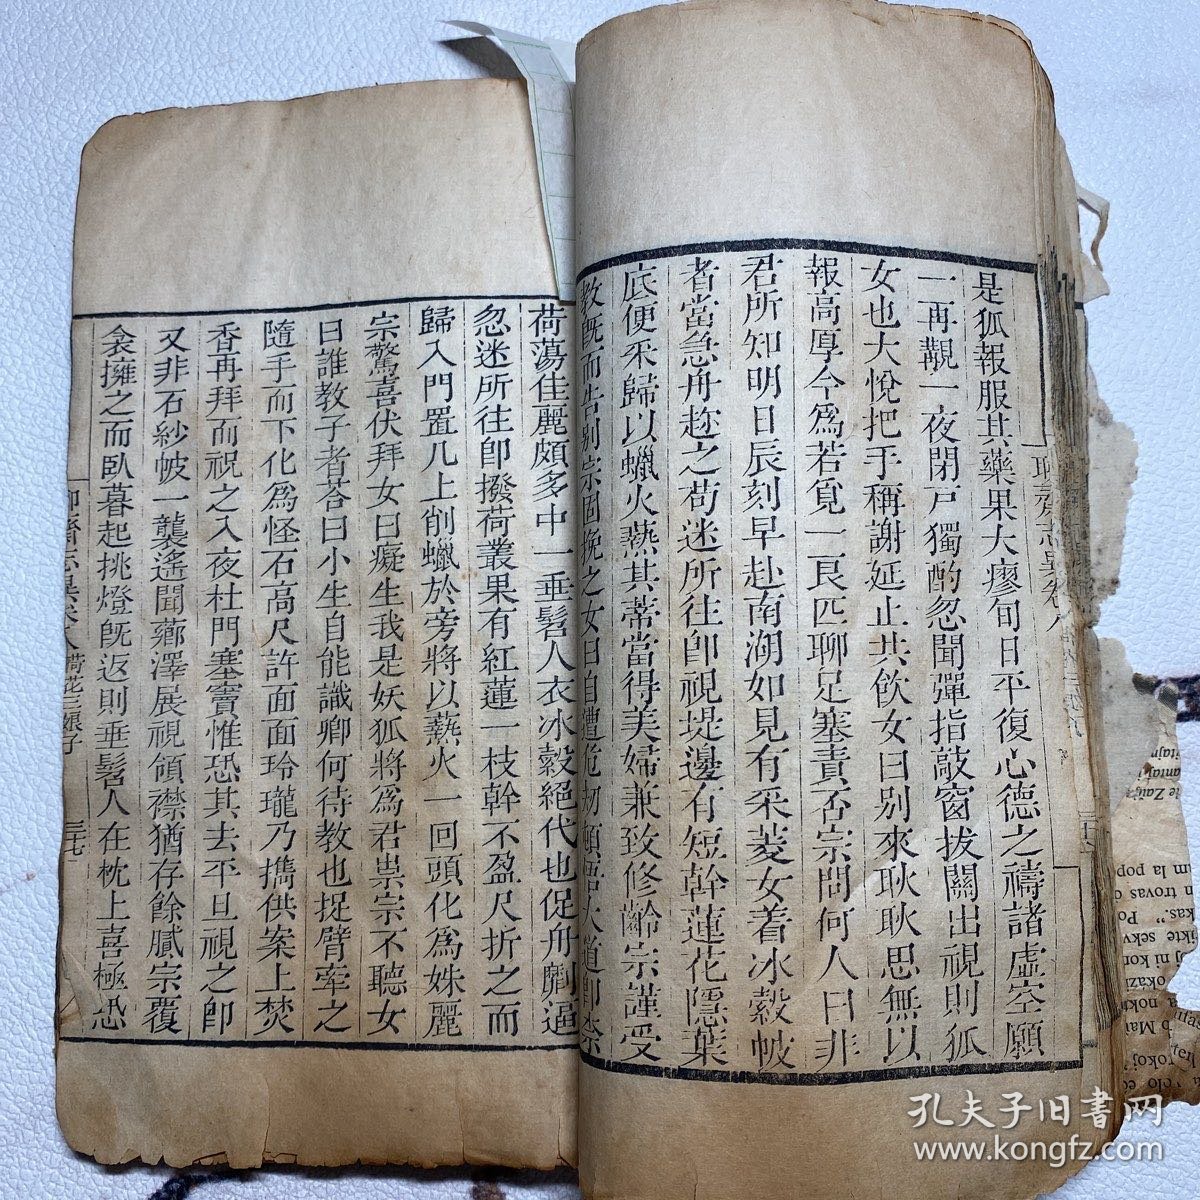 是狐報服其藥果大瘳旬日平復心德之禱諸虛空願
一再覯一夜閉戸獨酌忽聞彈指敲窗拔關出視則狐
女也大悅把手稱謝延止共飲女曰别來耿耿思無以
報高厚今爲若覓一良匹聊足塞責否宗問何人曰非
君所知明日辰刻早赴南湖如見有采菱女着冰縠帔
者當急舟趂之苟迷所往卽視堤邊有短幹蓮花隱葉
底便采歸以蠟火爇其蒂當得美婦兼致修齡宗謹受
教旣而告别宗固挽之女曰自遭危刼頓悟大道卽奈
荷蕩佳麗頗多中一垂髫人衣冰縠絕代也促舟劘逼
忽迷所往卽撥荷叢果有紅蓮一枝幹不盈尺折之而
歸入門置几上削蠟於旁將以爇火一回頭化爲姝麗
宗驚喜伏拜女曰癡生我是妖狐將爲君祟宗不聽女
曰誰教子者荅曰小生自能識卿何待教也捉臂牽之
隨手而下化爲怪石高尺許面面玲瓏乃攜供案上焚
香再拜而祝之入夜杜門塞竇惟恐其去平旦視之卽
又非石紗帔一襲遙聞薌澤展視領襟猶存餘膩宗覆
衾擁之而臥暮起挑燈旣返則垂髫人在枕上喜極恐
聊齋志異卷八 荷花三娘子 三七
孔夫子旧書网
www.kongfz.com